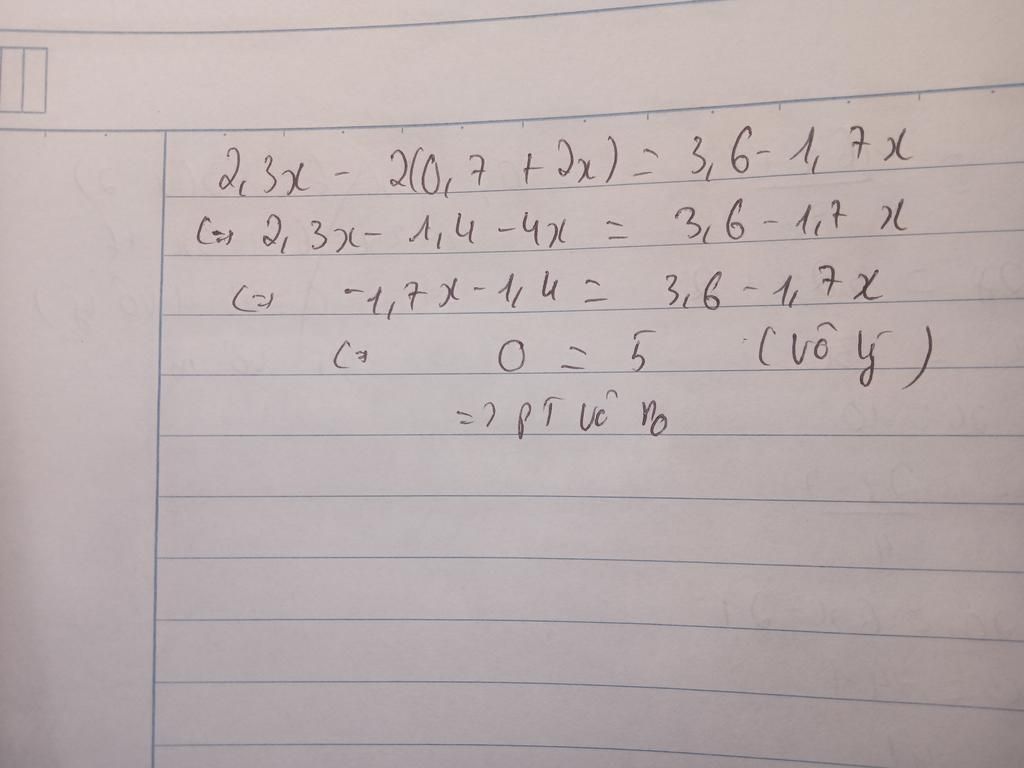 2,3x - 2(0,7 + 2x) = 3,6 - 1,7x
<=> 2,3x - 1,4 - 4x = 3,6 - 1,7 x
<=> -1,7x - 1,4 = 3,6 - 1,7x
<=> 0 = 5 (vô lý)
=> PT vô no